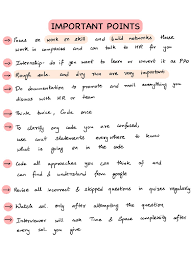 IMPORTANT POINTS
Focus on work on skill and build networks those
work in companies and can talk to HR for you
Internship: do if you want to learn or convert it as PPO
Rough sol. and dry run are very important
Do documentation to promote and mail everything you
discuss with HR or team
Think twice, Code once
To clarify any code you are confused,
use cout statements everywhere to know
what is going on in the code
Code all approaches you can think of and
can find & understand from google
Revise all incorrect & skipped questions in quizes regularly
Watch sol. only after attempting the question
Interviewer will ask Time & Space complexity after
every sol. you give